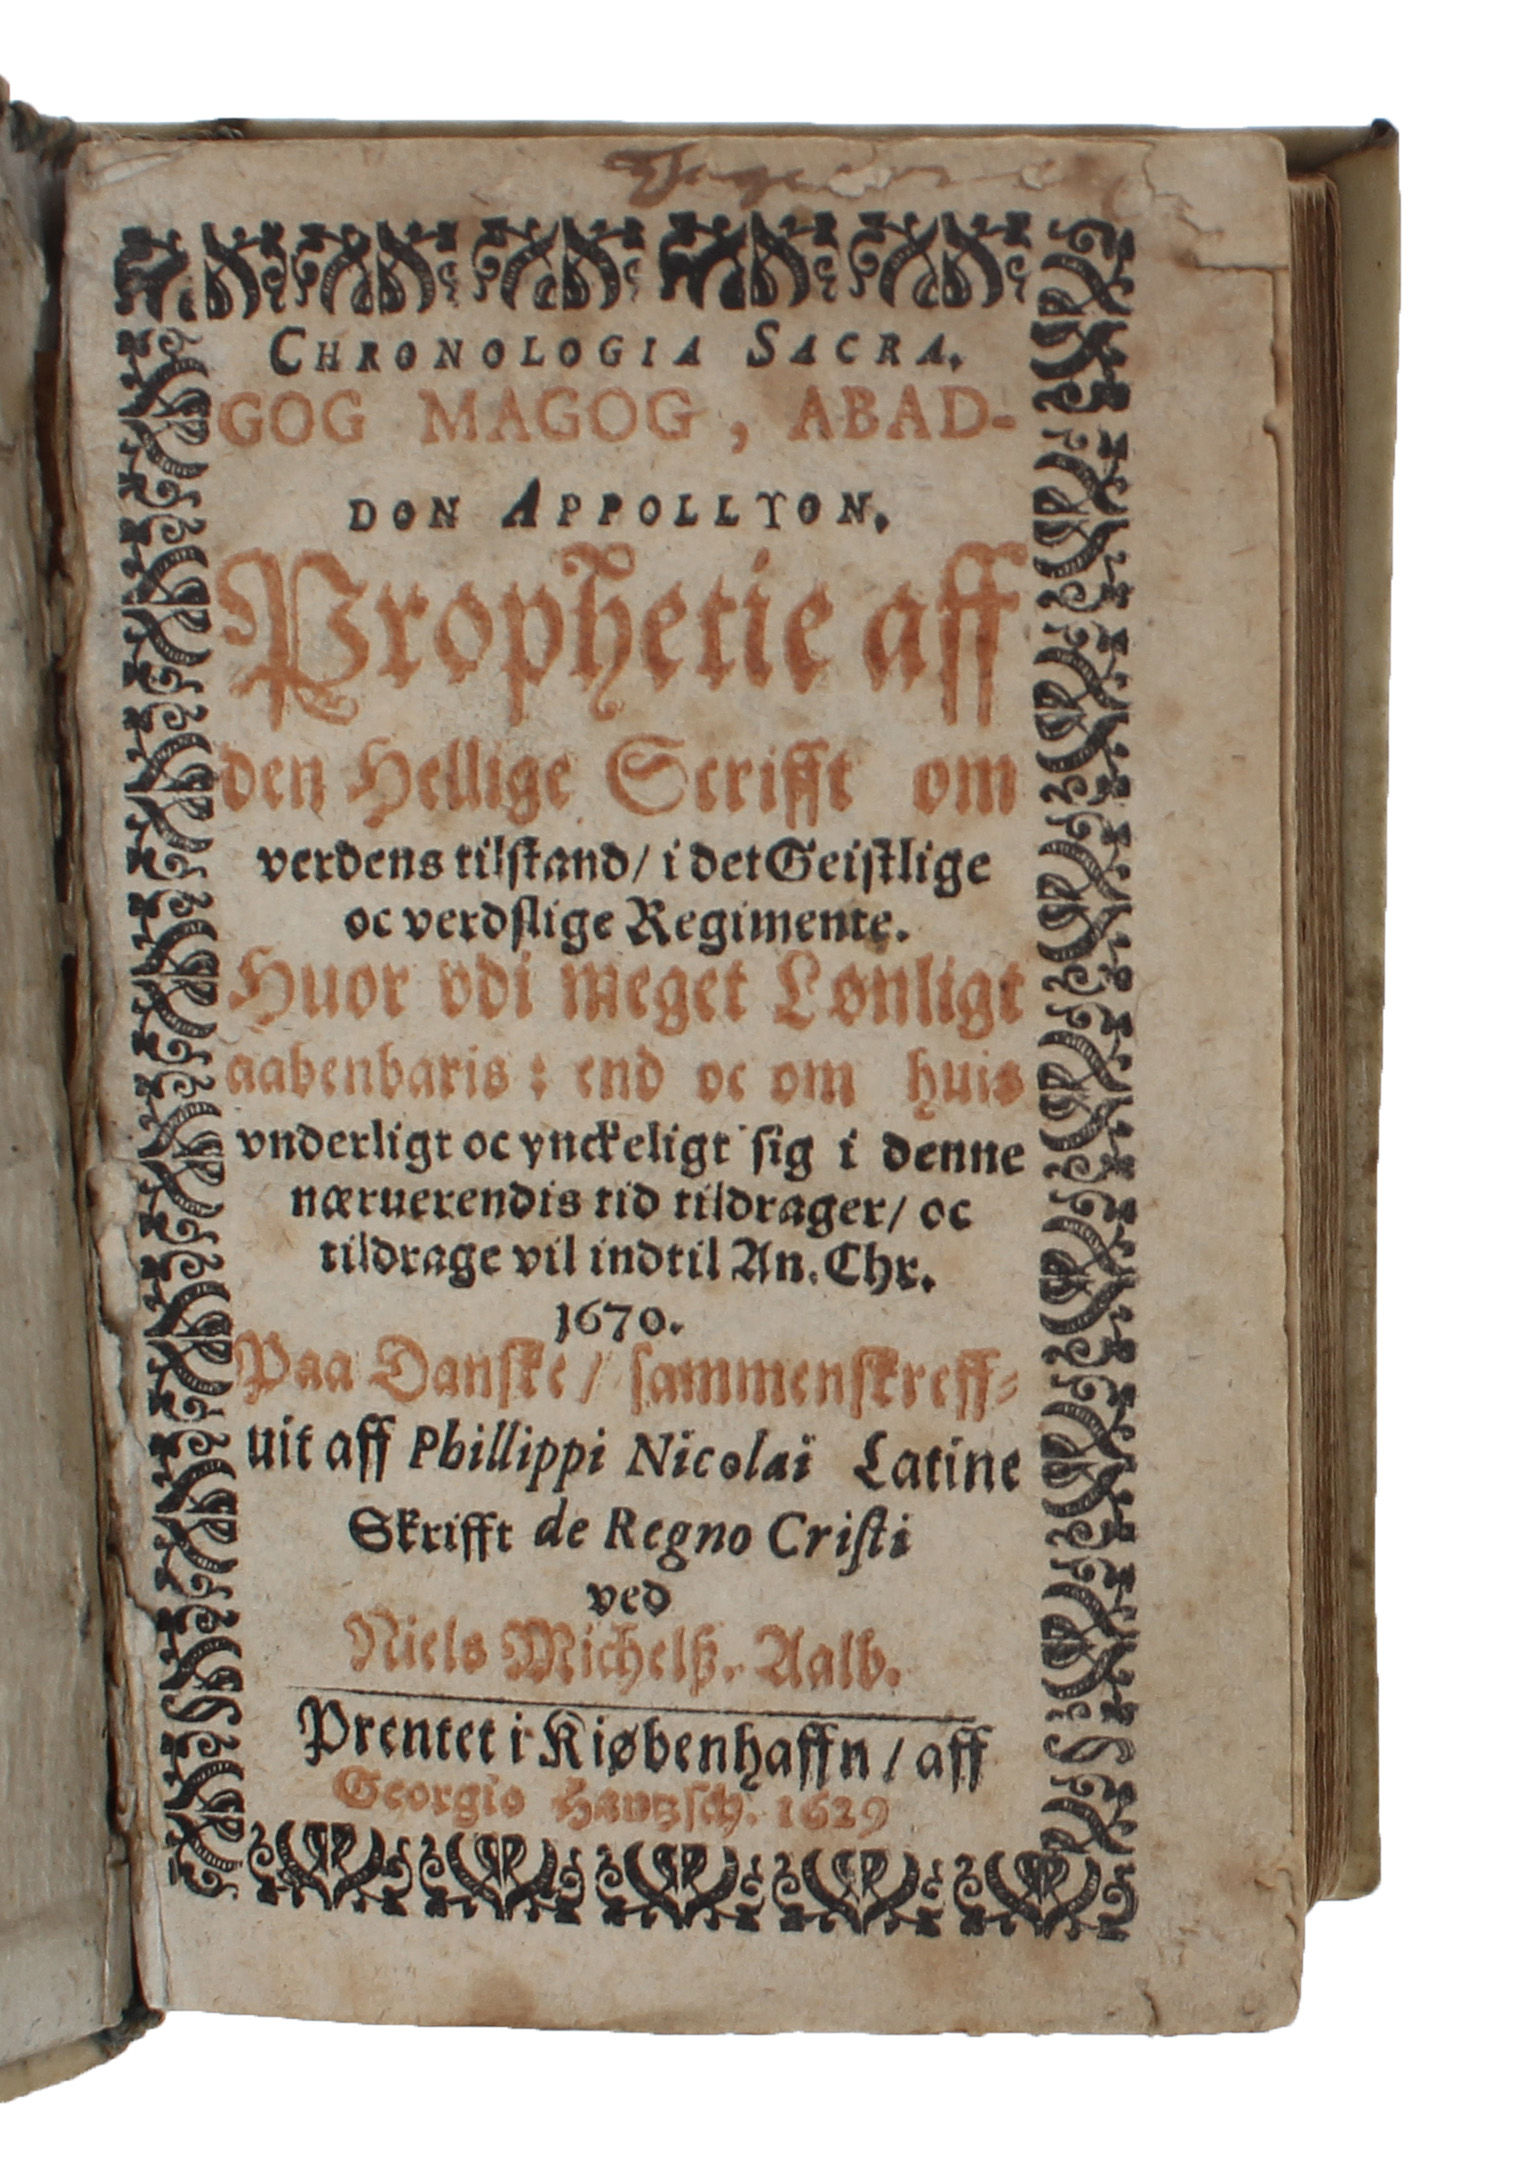 CHRONOLOGIA SACRA.
GOG MAGOG, ABAD-
DON APPOLLYON.
Prophetie aff
den Hellige Scrifft om
verdens tilstand/ i det Geistlige
oc verdslige Regimente.
Huor vdi meget Lønligt
aabenbaris: end oc om huis
vnderligt oc ynckeligt sig i denne
næruerendis tid tildrager/ oc
tildrage vil indtil An. Chr.
1670.
Paa Danske/ sammenskreff-
uit aff Phillippi Nicolai Latine
Skrifft de Regno Cristi
ved
Niels Michelß. Aalb.
Prentet i Kiøbenhaffn/ aff
Georgio Hantzsch. 1629